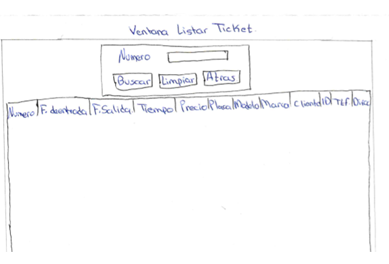 Ventana Listar Ticket
Numero
Buscar Limpiar Atras
Numero F. dentrada F. Salida Tiempo Precio Plaza Modelo Marca Cliente ID Telf